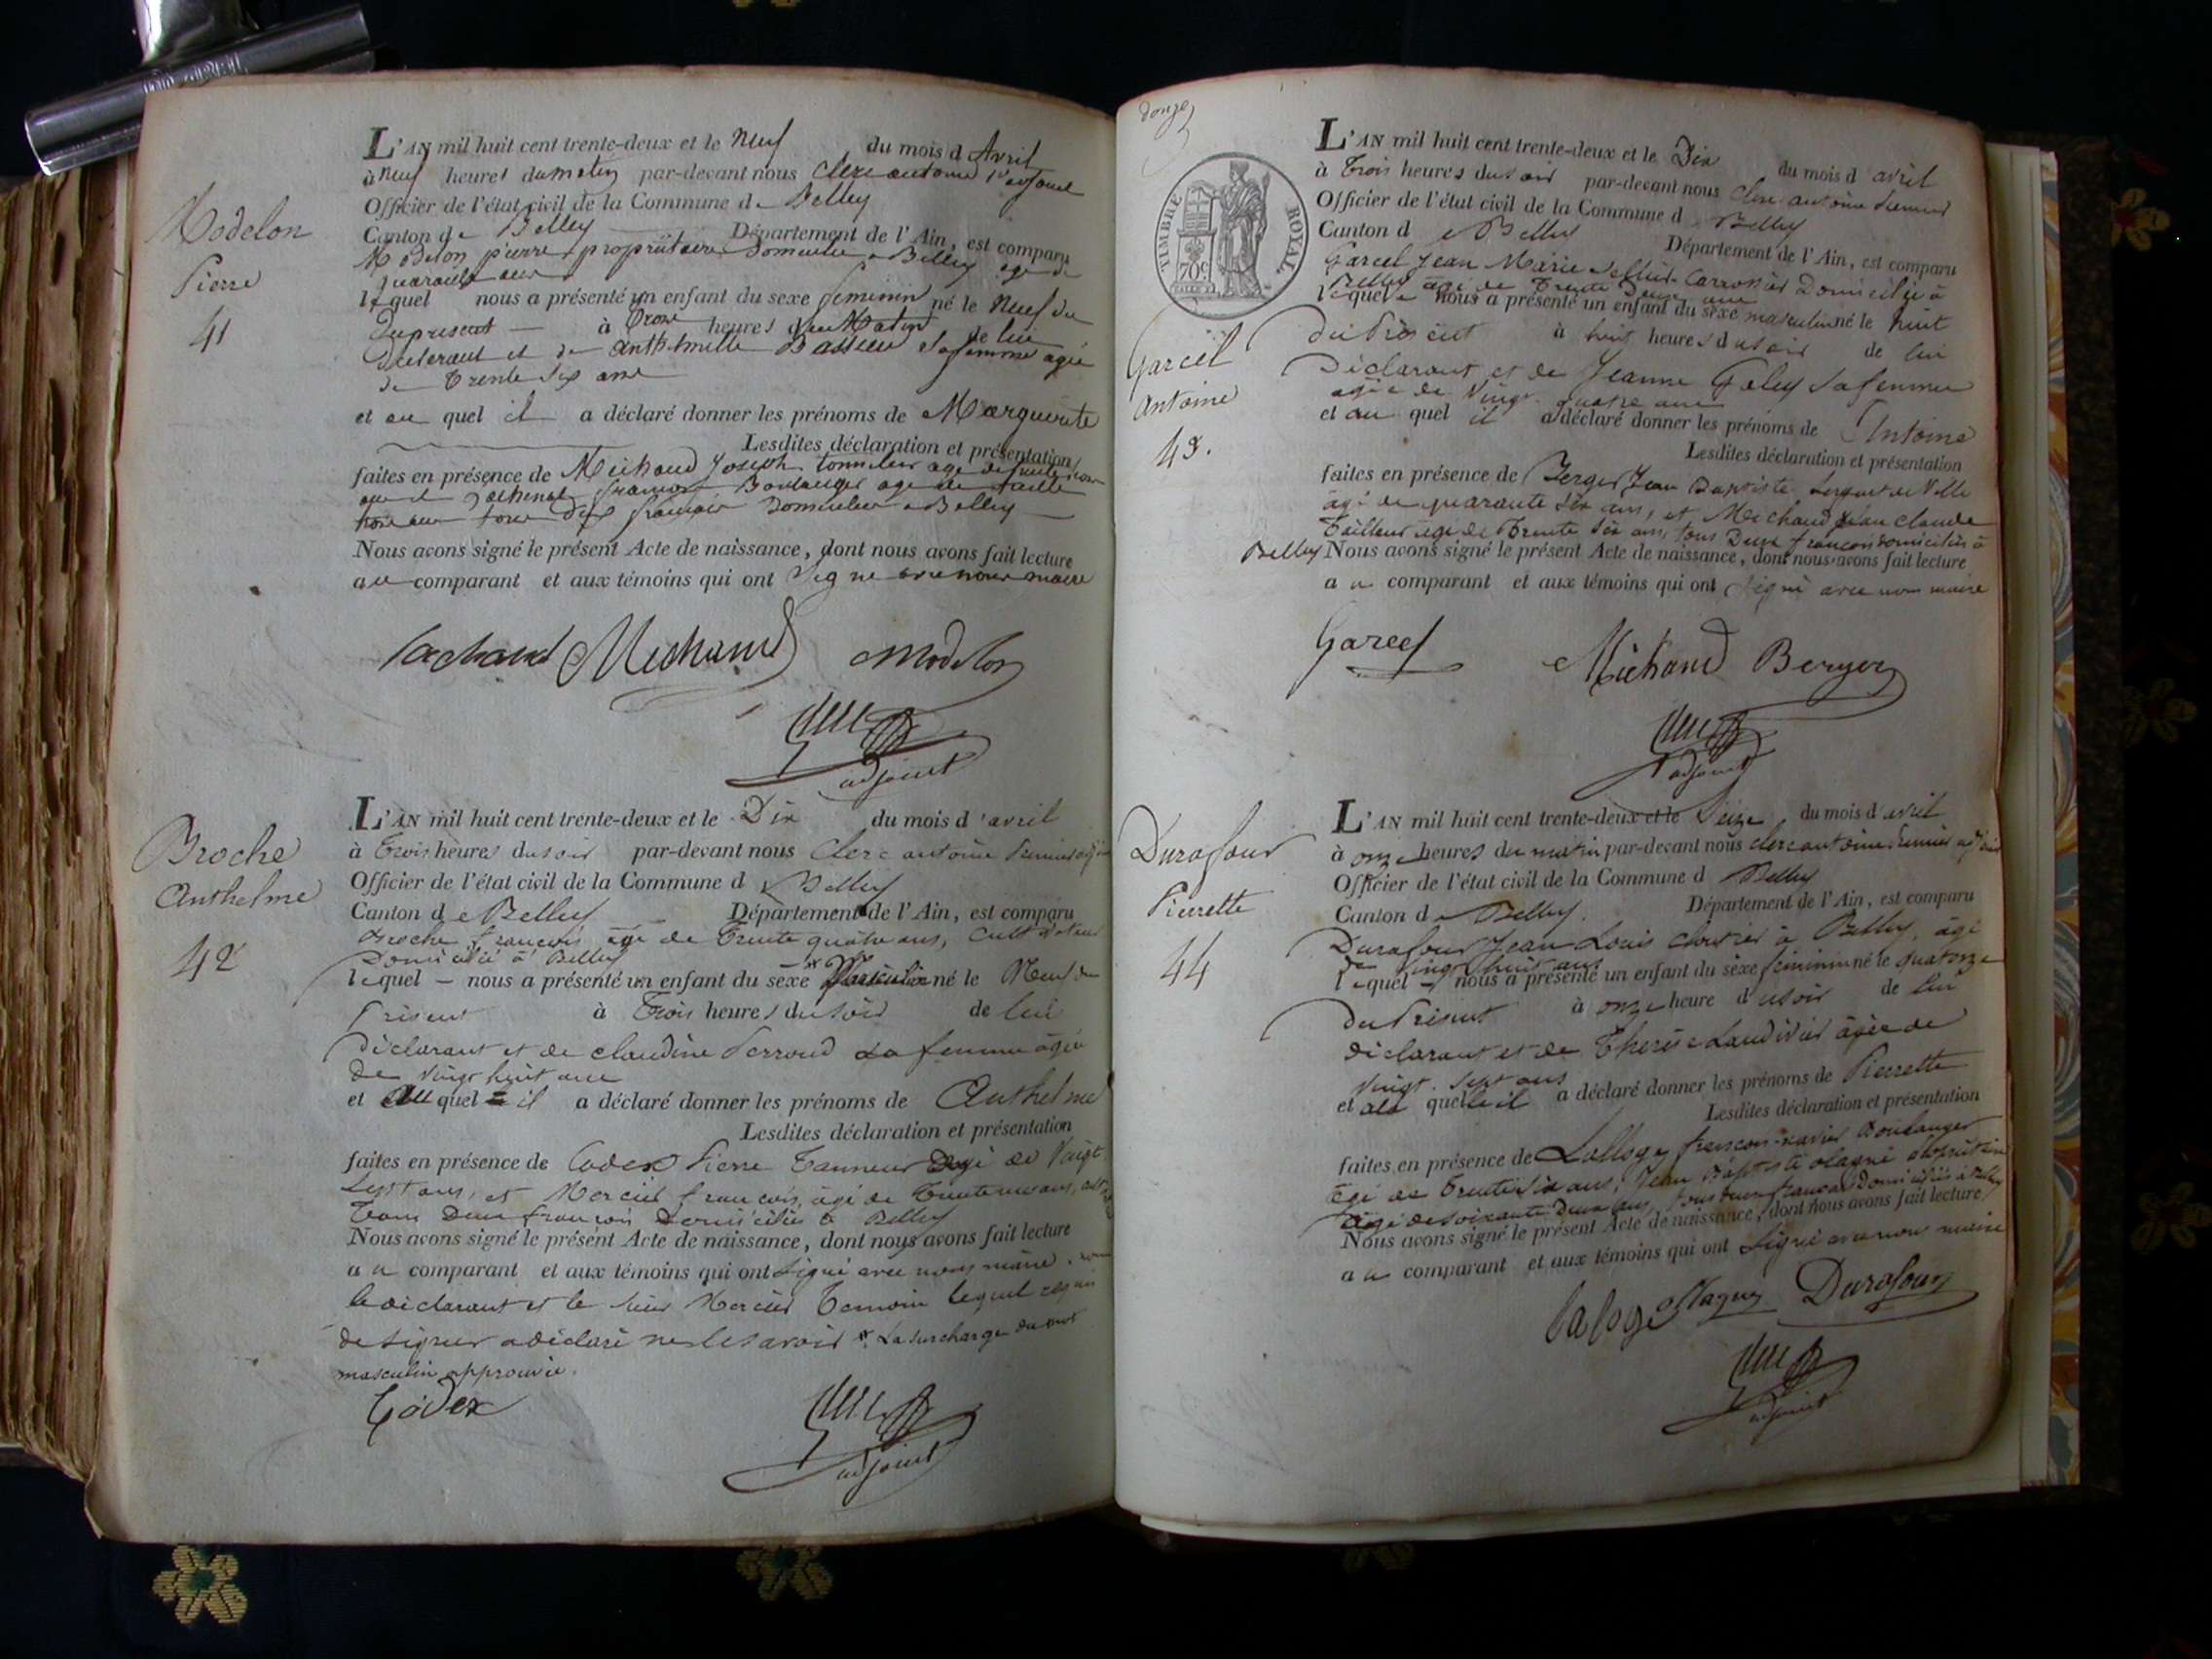 Modelon
Pierre
41
L'AN mil huit cent trente-deux et le neuf du mois d Avril
à neuf heures du matin par-devant nous Clerc antoine 1er adjoint
Officier de l'état civil de la Commune de Belley
Canton de Belley Département de l'Ain, est comparu
Modelon pierre propriétaire Domicilié a Belley agé de
quarante ans
lequel nous a présenté un enfant du sexe feminin né le neuf du
du present à trois heures du Matin de lui
declarant et de Anthelmette sa femme agée
de trente six ans
et au quel il a déclaré donner les prénoms de Marguerite
Lesdites déclaration et présentation
faites en présence de Michaud Joseph tonnelier age de
françois Boulanger age de
tous deux français Domicilies a Belley
Nous avons signé le présent Acte de naissance, dont nous avons fait lecture
au comparant et aux témoins qui ont signé avec nous maire
Michaud Modelon
adjoint
Broche
Anthelme
42
L'AN mil huit cent trente-deux et le Dix du mois d'avril
à trois heures du soir par-devant nous Clerc antoine Premier adj
Officier de l'état civil de la Commune de Belley
Canton de Belley Département de l'Ain, est comparu
Broche françois âgé de trente quatre ans, cultivateur
Domicilié à Belley
lequel nous a présenté un enfant du sexe * Masculin né le Neuf du
Présent à Trois heures du soir de lui
Déclarant et de claudine Perroud sa femme âgée
De vingt huit ans
et au quel il a déclaré donner les prénoms de Anthelme
Lesdites déclaration et présentation
faites en présence de Codex Pierre Tanneur âgé de Vingt
Sept ans, et Mercier françois, âgé de trente ans,
tous Deux français Domiciliés à Belley
Nous avons signé le présent Acte de naissance, dont nous avons fait lecture
au comparant et aux témoins qui ont signé avec nous maire. non
le déclarant et le sieur Mercier Temoin lequel requis
de signer a déclaré ne le savoir * La surcharge du mot
masculin approuvée.
Codex
adjoint
douze
TIMBRE ROYAL
70c
Garcel
Antoine
43.
L'AN mil huit cent trente-deux et le Dix du mois d'avril
à Trois heures du soir par-devant nous Clerc antoine Premier
Officier de l'état civil de la Commune d Belley
Canton de Belley Département de l'Ain, est comparu
Garcel Jean Marie Carrossier Domicilié à
Belley âgé de Trente Deux ans
lequel nous a présenté un enfant du sexe masculin né le huit
du Présent à huit heures du soir de lui
Déclarant et de Jeanne Goley sa femme
agée de Vingt quatre ans
et au quel il a déclaré donner les prénoms de Antoine
Lesdites déclaration et présentation
faites en présence de Berger Jean Baptiste Sergent de Ville
âgé de quarante six ans, et Michaud Jean Claude
Tailleur âgé de Trente six ans, tous Deux français domiciliés à
Belley Nous avons signé le présent Acte de naissance, dont nous avons fait lecture
au comparant et aux témoins qui ont signé avec nous maire
Garcel Michaud Berger
adjoint
Durafour
Pierrette
44
L'AN mil huit cent trente-deux et le Seize du mois d'avril
à onze heures du matin par-devant nous clerc antoine Premier adjoint
Officier de l'état civil de la Commune d Belley
Canton de Belley. Département de l'Ain, est comparu
Durafour Jean Louis cloutier à Belley, âgé
De vingt huit ans
lequel nous a présenté un enfant du sèxe féminin né le quatorze
du Présent à onze heure du soir de lui
déclarant et de Therèse Landivier âgée de
vingt sept ans
et ala quelle il a déclaré donner les prénoms de Pierrette
Lesdites déclaration et présentation
faites en présence de Lalloge françois-xavier Boulanger
âgé de trente six ans, Jean Baptiste olagnié propriétaire
âgé de soixante Deux ans, tous deux français Domiciliés à Belley
Nous avons signé le présent Acte de naissance, dont nous avons fait lecture
au comparant et aux témoins qui ont signé avec nous maire
Laloge Olagny Durafour
adjoint